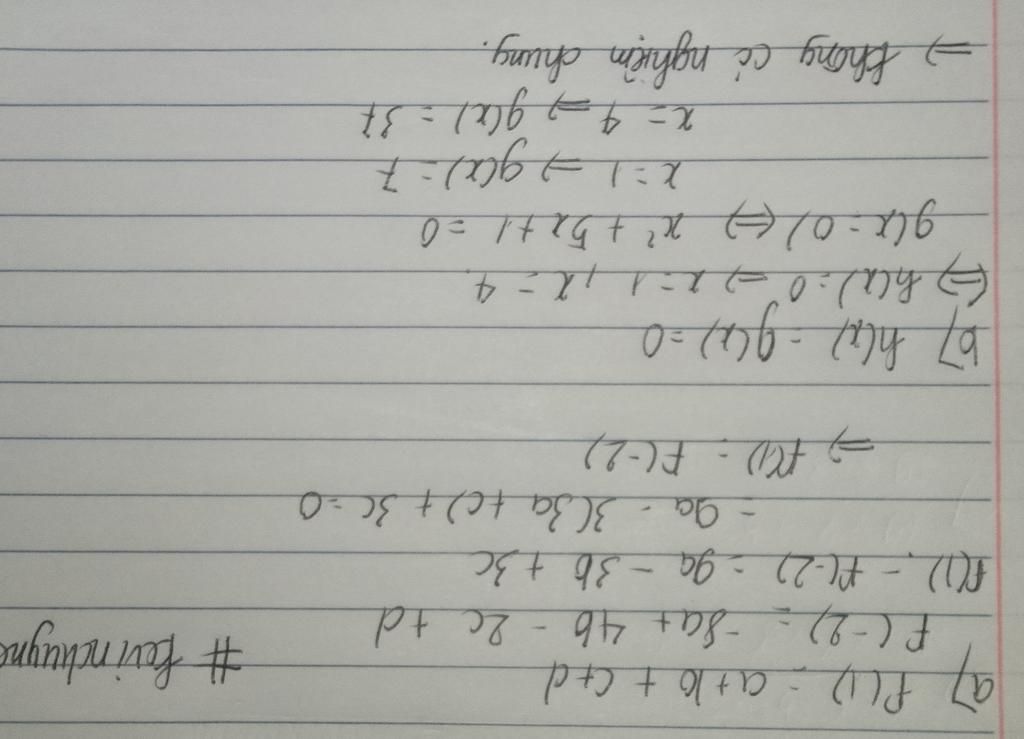 a) f(1) = a+b + c+d
# kevinchuyne
F(-2) = -8a+ 4b - 2c + d
f(1) - f(-2) = 9a - 3b + 3c
= 9a - 3(3a + c) + 3c = 0
⇒ f(1) = F(-2)
b) h(x) = g(x) = 0
⇔ h(x) = 0 ⇒ x = 1, x = 4.
g(x = 0) ⇔ x² + 5x + 1 = 0
x = 1 ⇒ g(x) = 7
x = 4 ⇒ g(x) = 37
⇒ không có nghiệm chung.